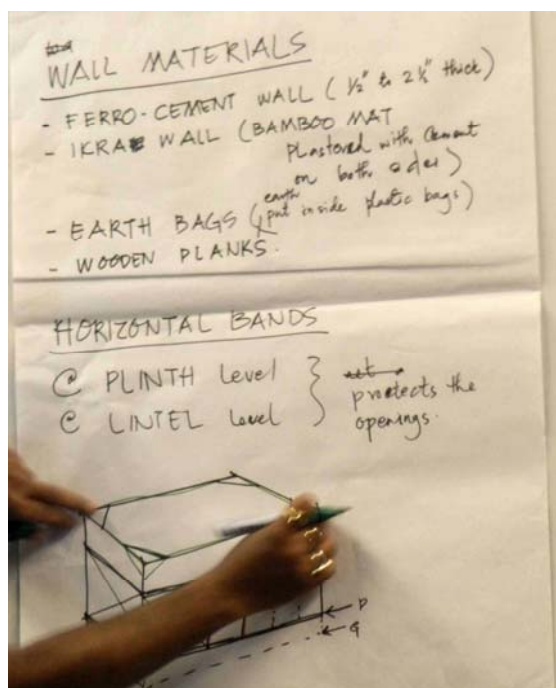 WALL MATERIALS
- FERRO-CEMENT WALL (1/2" to 2 1/2" thick)
- IKRA WALL (BAMBOO MAT
Plastered with Cement
on both sides)
- EARTH BAGS (earth put inside plastic bags)
- WOODEN PLANKS.
HORIZONTAL BANDS
@ PLINTH Level
@ LINTEL Level
protects the
openings.
P
G